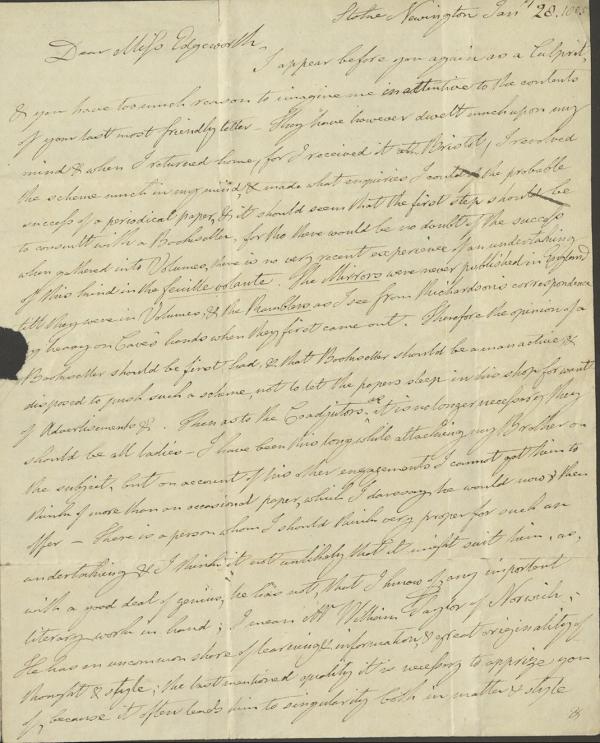 Stoke Newington Jan.y 28. 1805
Dear Miss Edgeworth,
I appear before you again as a Culprit,
& you have too much reason to imagine me inattentive to the contents
of your last most friendly letter – They have however dwelt much upon my
mind & when I returned home, for I received it at Bristol, I revolved
the scheme much in my mind & made what enquiries I could the probable
success of a periodical paper, & it should seem that the first step should be
to consult with a Bookseller, for tho there would be no doubt of the success
when gathered into Volumes, there is no very recent experience of an undertaking
of this kind in the feuille volante. The Mirrors were never published in England
till they were in Volumes, & the Ramblers as I see from Richardson's correspondence
heavy on Cave's hands when they first came out. Therefore the opinion of a
Bookseller should be first had, & that Bookseller should be a man active &
disposed to push such a scheme, not to let the papers sleep in his shop for want
of Advertisements &c. Then as to the Coadjutors, it is no longer necessary they
should be all ladies – I have been this long while attacking my Brother on
the subject, but on account of his other engagements I cannot get him to
think of more than an occasional paper, which I daresay he would now & then
offer – There is a person whom I should think very proper for such an
undertaking & I think it not unlikely that it might suit him, as,
with a good deal of genius, he has not, that I know of, any important
literary work in hand; I mean Mr William Taylor of Norwich;
He has an uncommon share of learning & information, & great originality of
thought & style; the last mentioned quality it is necessary to apprize you
of, because it often leads him to singularity both in matter & style